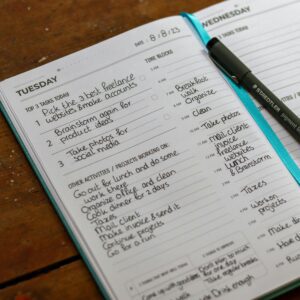 WEDNESDAY
TUESDAY
DATE 8/8/23
TOP 3 TASKS TODAY
1 Pick the 3 best freelance
websites & make accounts
2 Brainstorm again for
product ideas
3 Take photos for
social media
OTHER ACTIVITIES / PROJECTS WORKING ON:
Go out for lunch and do some
work there
Organize office and clean
Cook dinner for 2 days
Taxes
Mail client
Make invoice & send it
Continue projects
Go for a run
TIME BLOCKS
Breakfast
Walk
Organize
Clean
Take photos
Mail client
invoice
freelance
websites
Lunch
& brainstorm
Taxes
Work on
projects
Dinner
Run
STAEDTLER
for one day
Don't plan to much
Take regular breaks
Drink enough